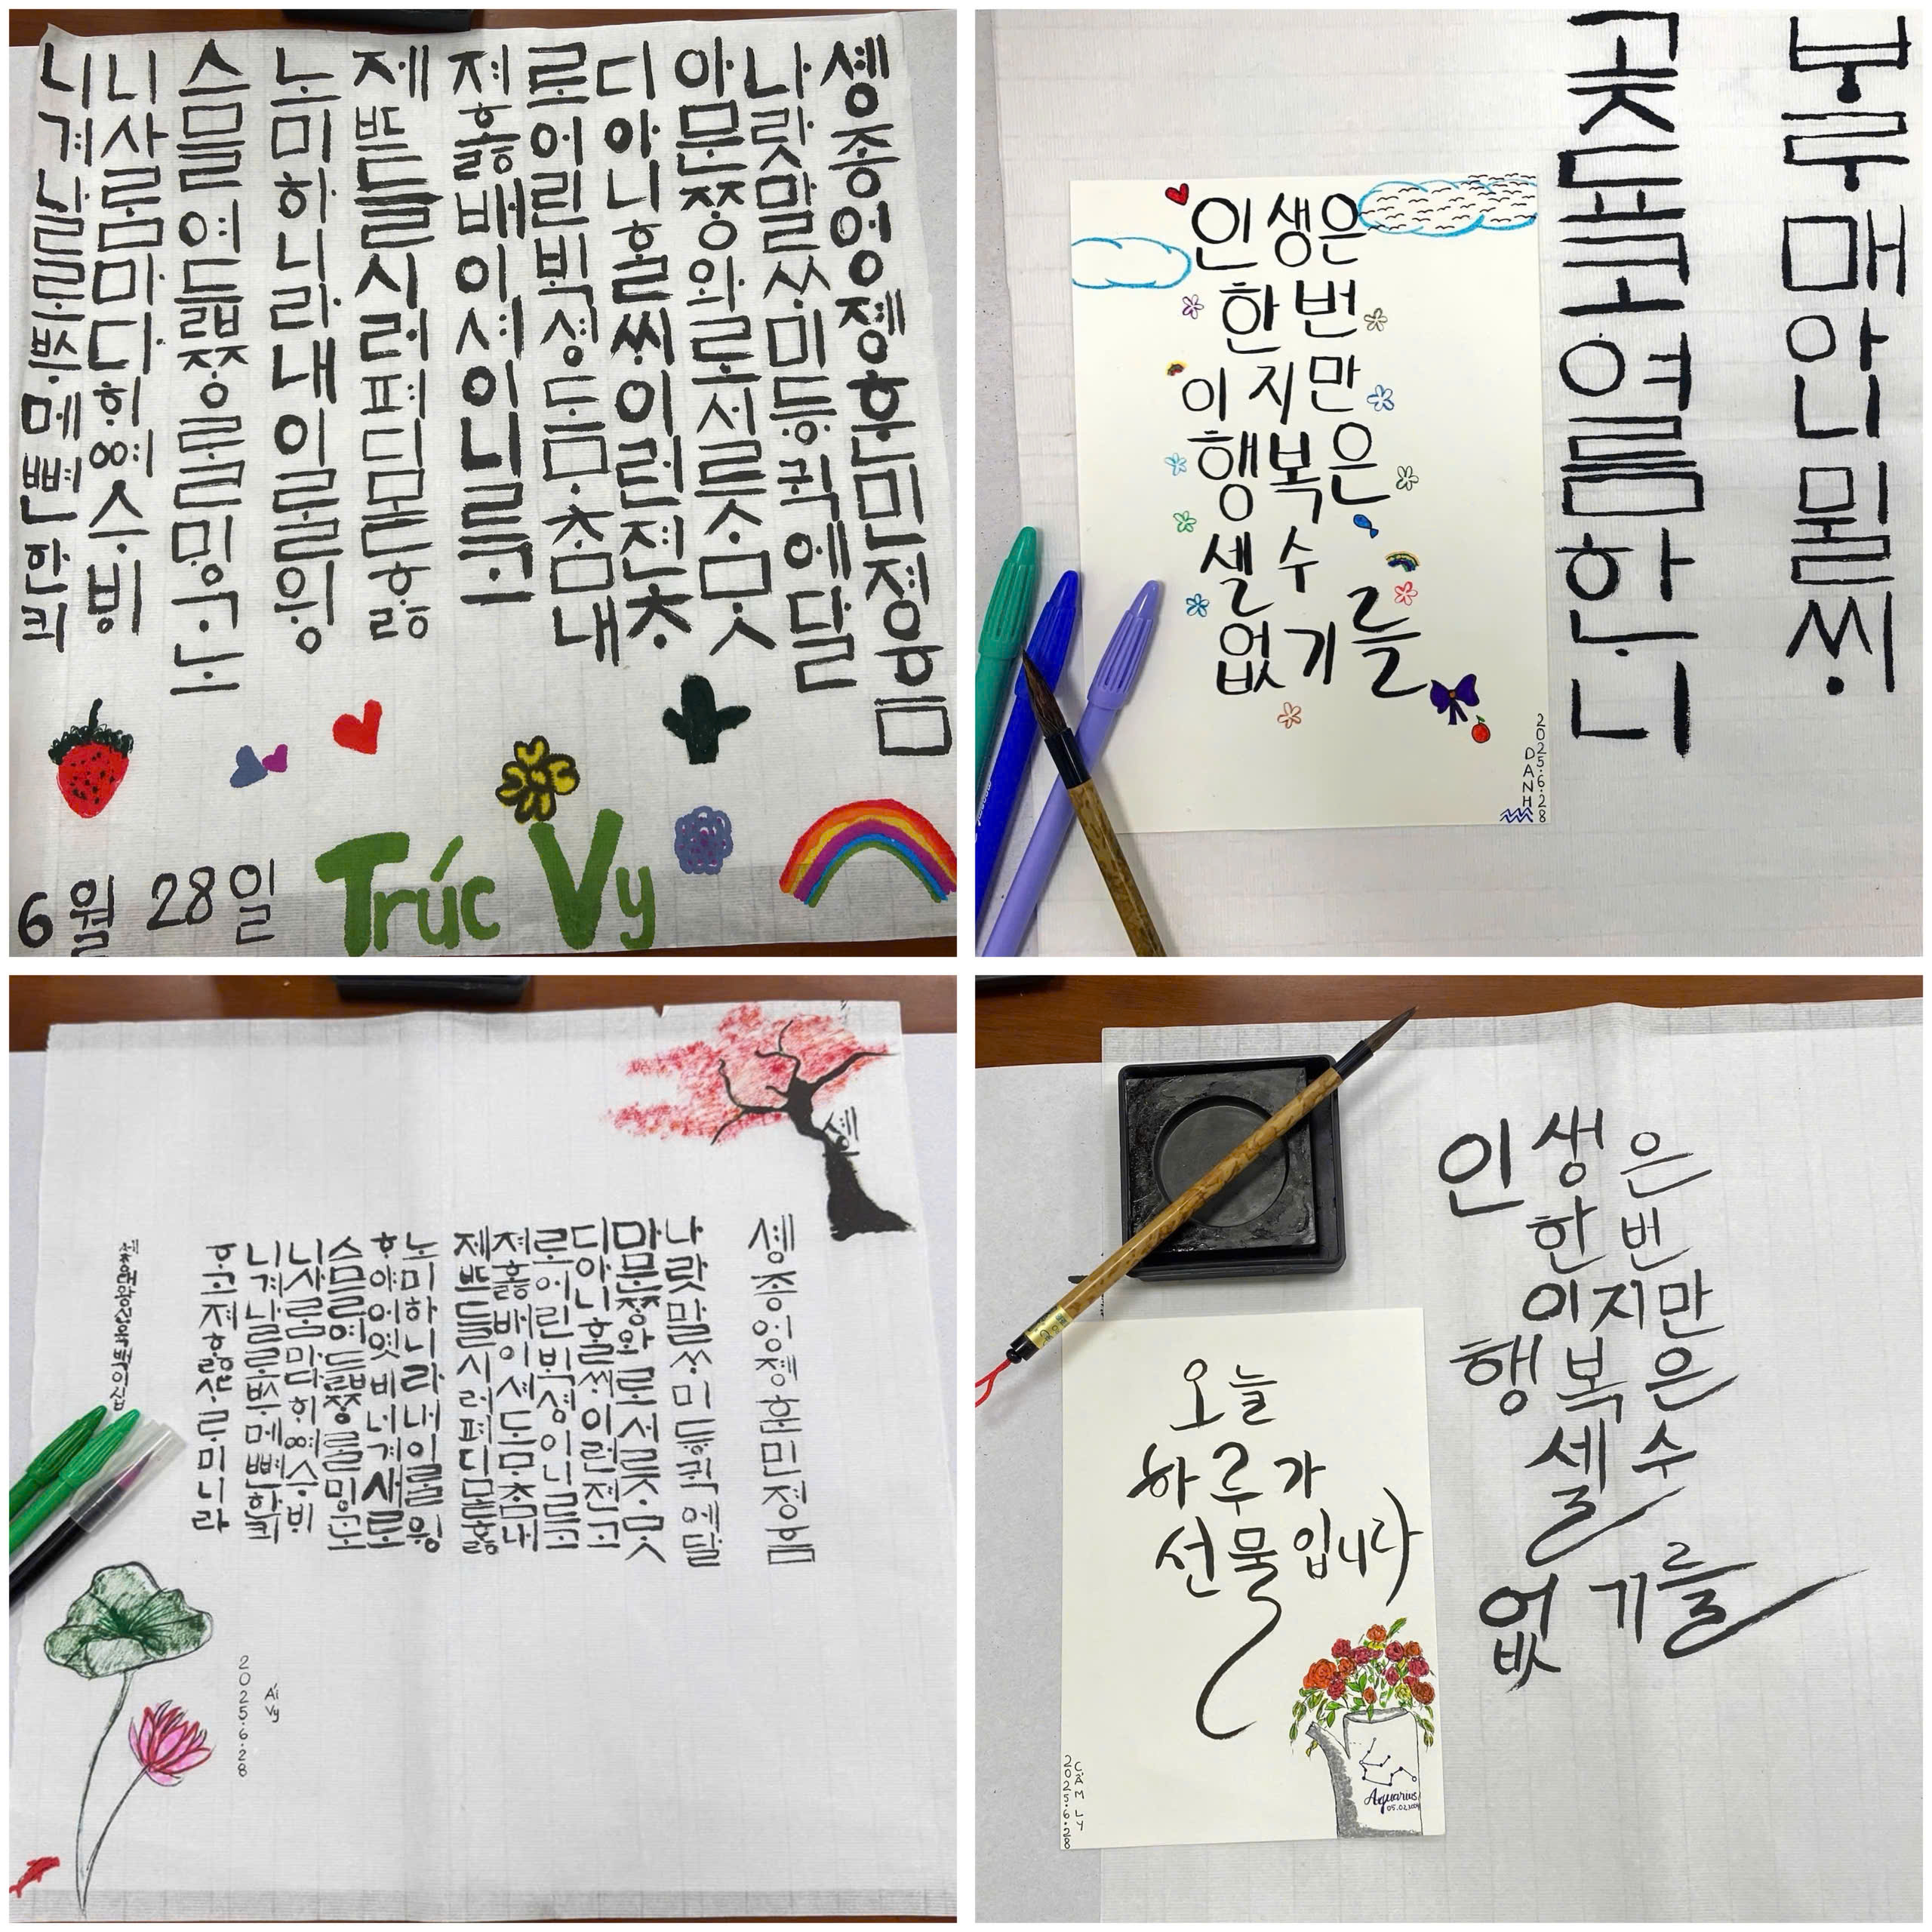 솅종영졩훈민졍음
나랏말ᄊᆞ미듕귁에달
아문ᄍᆞᆼ와로서르ᄉᆞᄆᆞᆺ
디아니ᄒᆞᆯᄊᆡ이런젼ᄎᆞ
로어린ᄇᆡᆨ셩도ᄆᆞᄎᆞᆷ내
져ᄒᆞᇙ배이셔이니르고
제ᄠᅳ들시러펴디몯ᄒᆞᇙ
노미하니라내이ᄅᆞᆯ윙
스믈여듧ᄍᆞᆼᄅᆞᆯᄆᆡᇰᄀᆞ노
니사ᄅᆞᆷ마다ᄒᆡᅇᅧ수ᄫᅵ
니겨날로ᄡᅮ메뼌한킈
6월 28일 Trúc Vy
ᄇᆞᄅᆞ매아니뮐ᄊᆡ
곶됴코여름하ᄂᆞ니
인생은
한번
이지만
행복은
셀 수
없기를
2025.6.28
DANH
솅종영졩훈민졍음
나랏말ᄊᆞ미듕귁에달
문ᄍᆞᆼ와로서르ᄉᆞᄆᆞᆺ
디아니ᄒᆞᆯᄊᆡ이런젼
로어린ᄇᆡᆨ셩이니르고
져ᄒᆞᇙ배이셔도ᄆᆞᄎᆞᆷ내
제ᄠᅳ들시러펴디몯ᄒᆞᇙ
노미하니라내이ᄅᆞᆯ윙
ᄒᆞ야어엿비너겨새로
스믈여듧ᄍᆞᆼᄅᆞᆯᄆᆡᇰ
니사ᄅᆞᆷ마다ᄒᆡᅇᅧ수ᄫᅵ
니겨날로ᄡᅮ메뼌한킈
ᄒᆞ고져ᄒᆞᇙᄯᆞᄅᆞ미니라
2025.6.28
Ái Vy
인생은
한번
이지만
행복은
셀 수
없기를
오늘
하루가
선물입니다
Aquarius
CẨM LY
2025.6.28